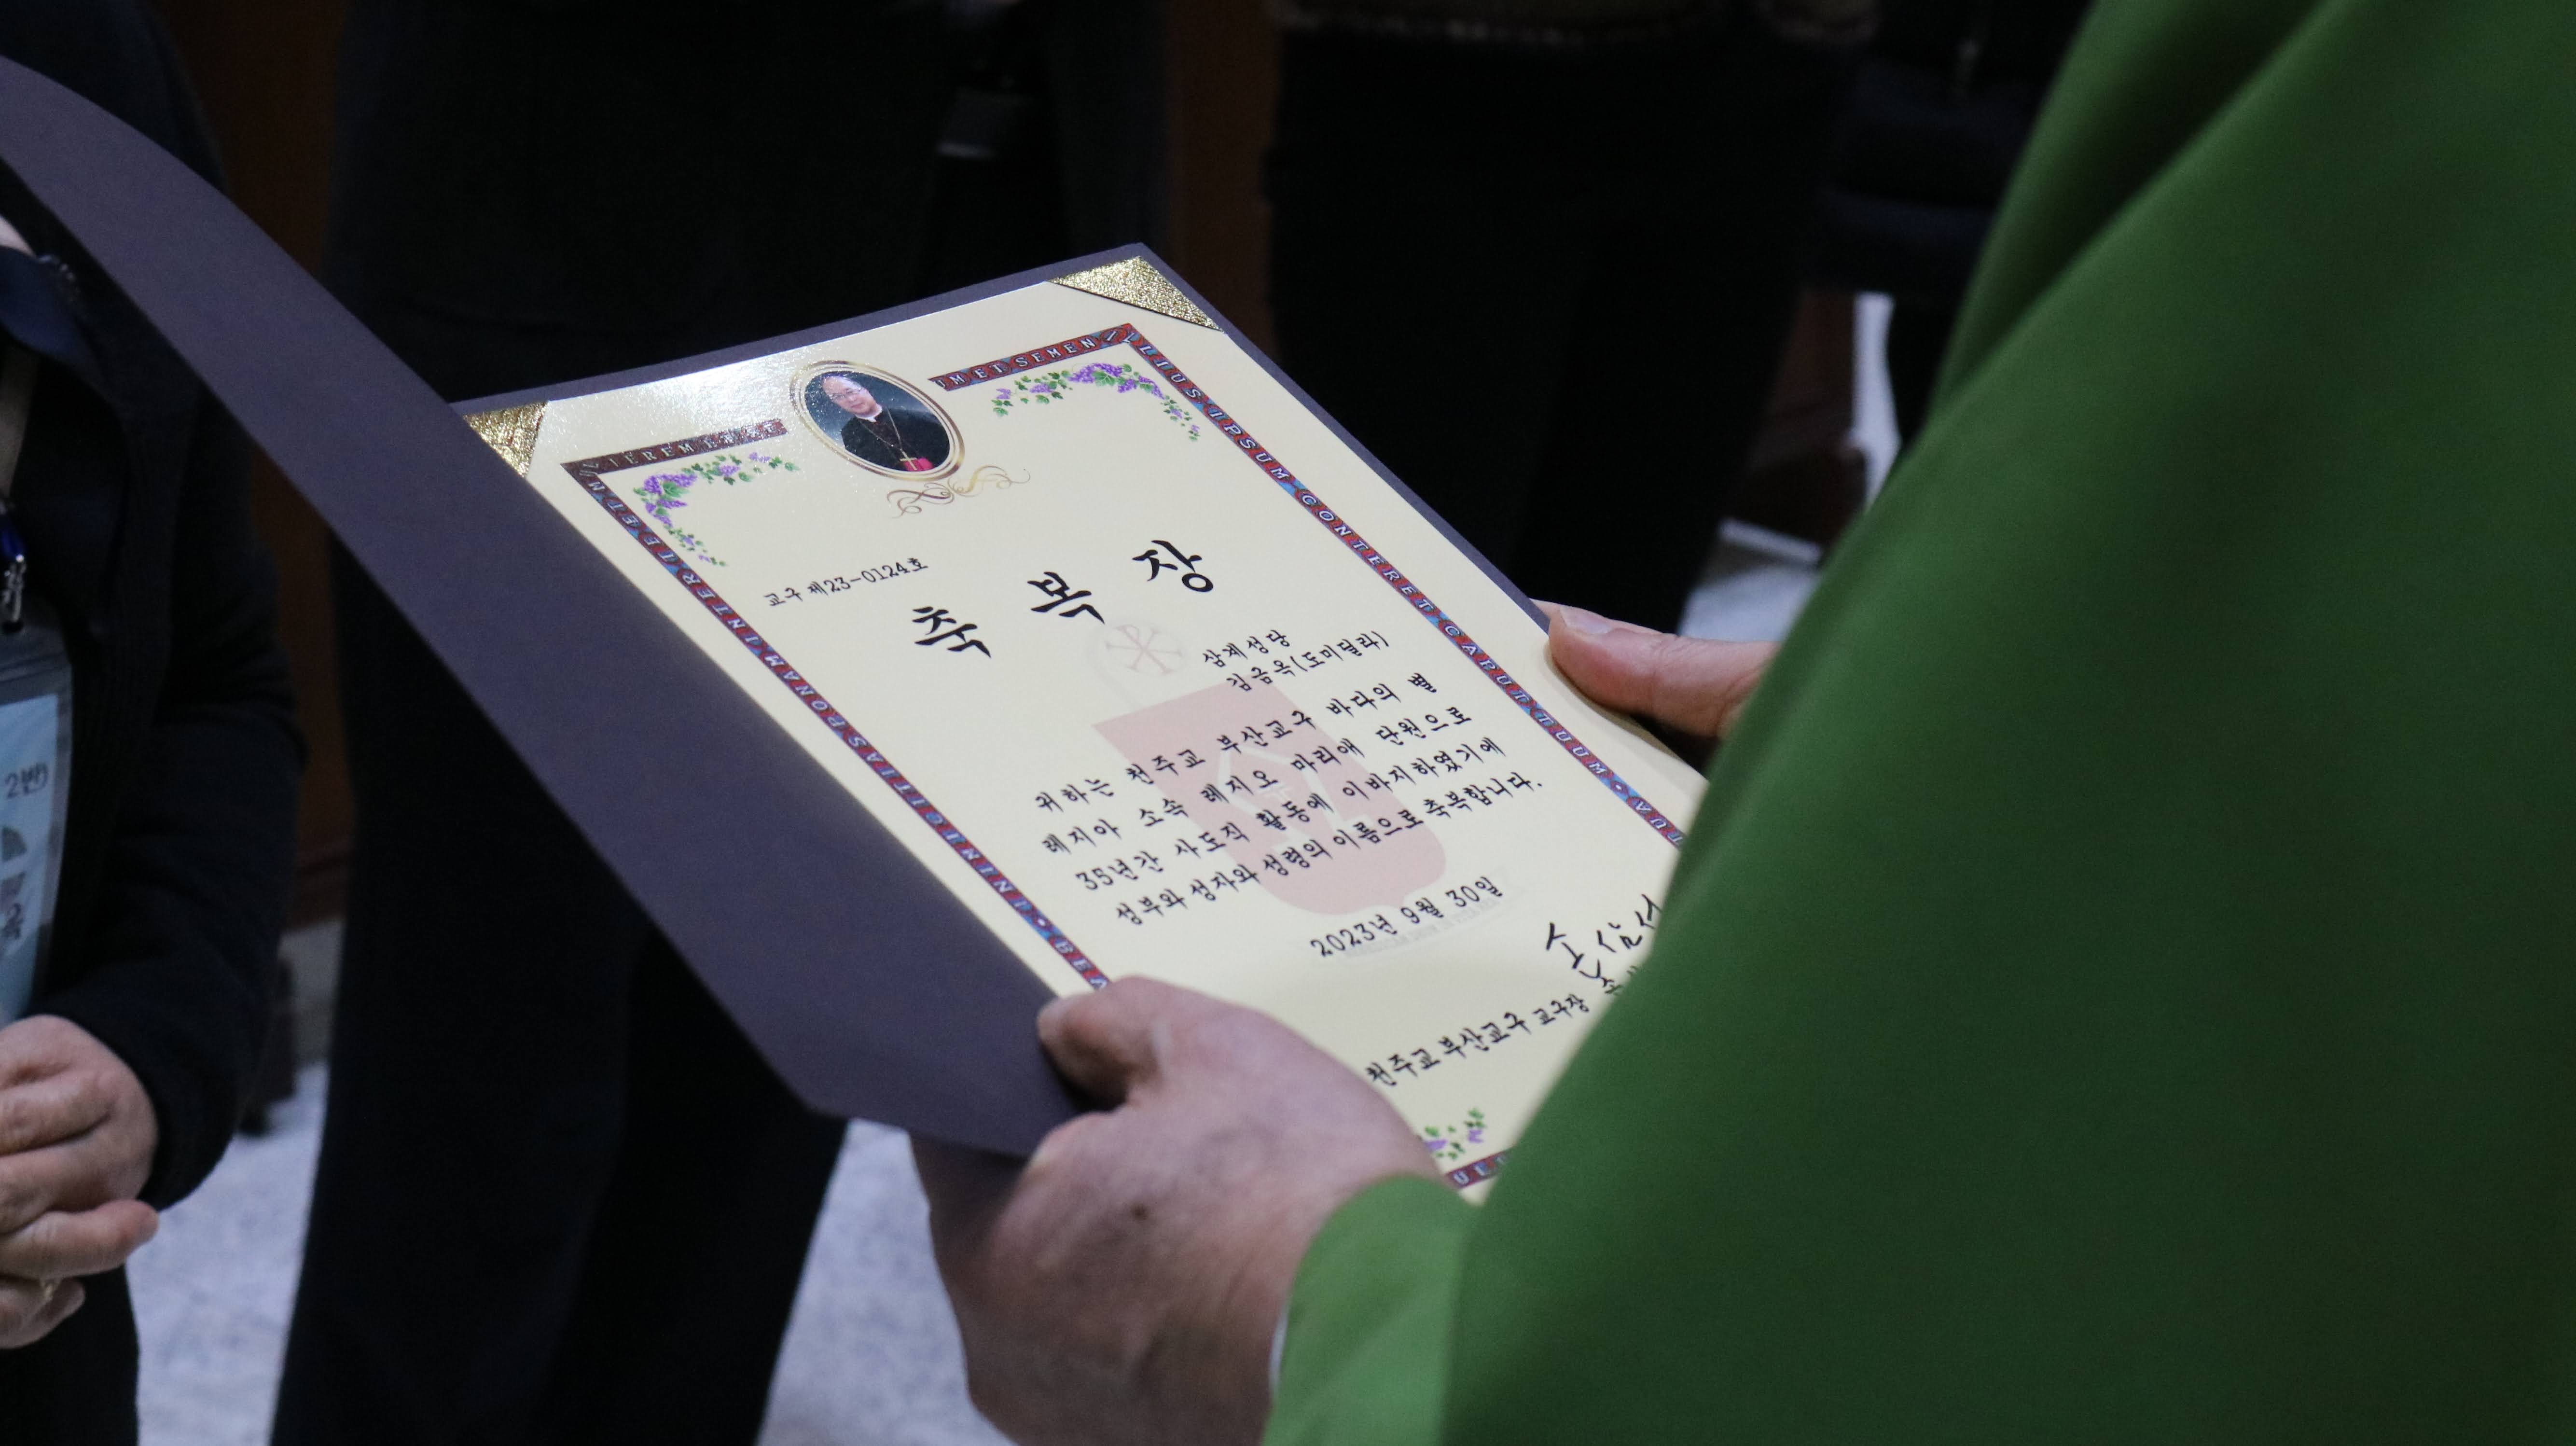 UMETSEMENILLIUS·IPSUM CONTERET CAPUT TUUM·
INIMICITIASPONAMINTER
교구 제23-0124호
축 복 장
삼계성당
김금옥(도미틸라)
귀하는 천주교 부산교구 바다의 별
레지아 소속 레지오 마리애 단원으로
35년간 사도직 활동에 이바지하였기에
성부와 성자와 성령의 이름으로 축복합니다.
2023년 9월 30일
천주교 부산교구 교구장
2반